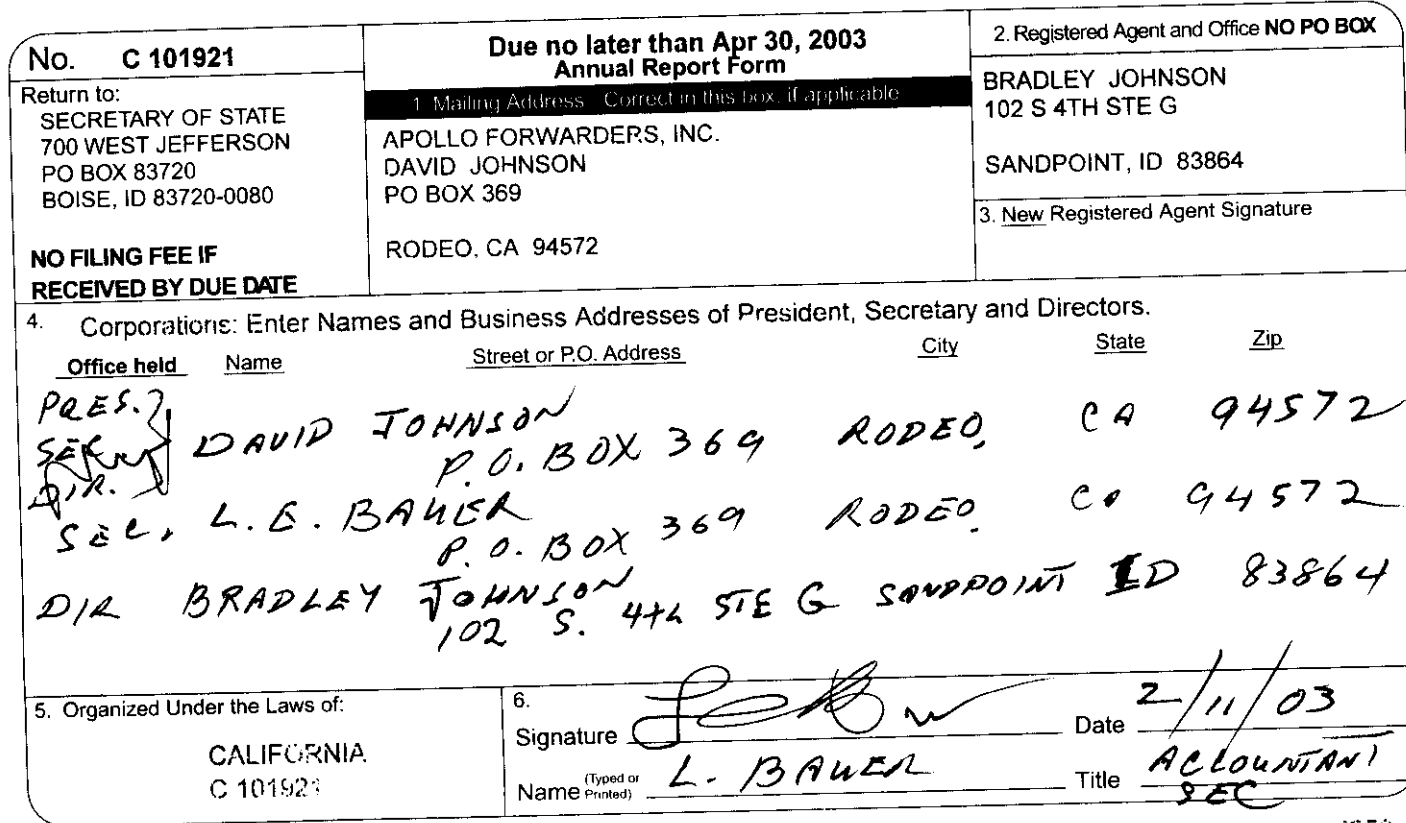 No. C 101921
Return to:
SECRETARY OF STATE
700 WEST JEFFERSON
PO BOX 83720
BOISE, ID 83720-0080
NO FILING FEE IF
RECEIVED BY DUE DATE
Due no later than Apr 30, 2003
Annual Report Form
1. Mailing Address Correct in this box, if applicable
APOLLO FORWARDERS, INC.
DAVID JOHNSON
PO BOX 369
RODEO, CA 94572
2. Registered Agent and Office NO PO BOX
BRADLEY JOHNSON
102 S 4TH STE G
SANDPOINT, ID 83864
3. New Registered Agent Signature
4. Corporations: Enter Names and Business Addresses of President, Secretary and Directors.
Office held Name Street or P.O. Address City State Zip
PRES.
SEC
DIR.
DAVID JOHNSON
P.O. BOX 369 RODEO, CA 94572
SEC, L.E. BAUER
P.O. BOX 369 RODEO, CA 94572
DIR BRADLEY JOHNSON
102 S. 4th STE G SANDPOINT ID 83864
5. Organized Under the Laws of:
CALIFORNIA
C 101921
6.
Signature Date 2/11/03
Name (Typed or Printed) L. BAUER Title ACCOUNTANT
SEC